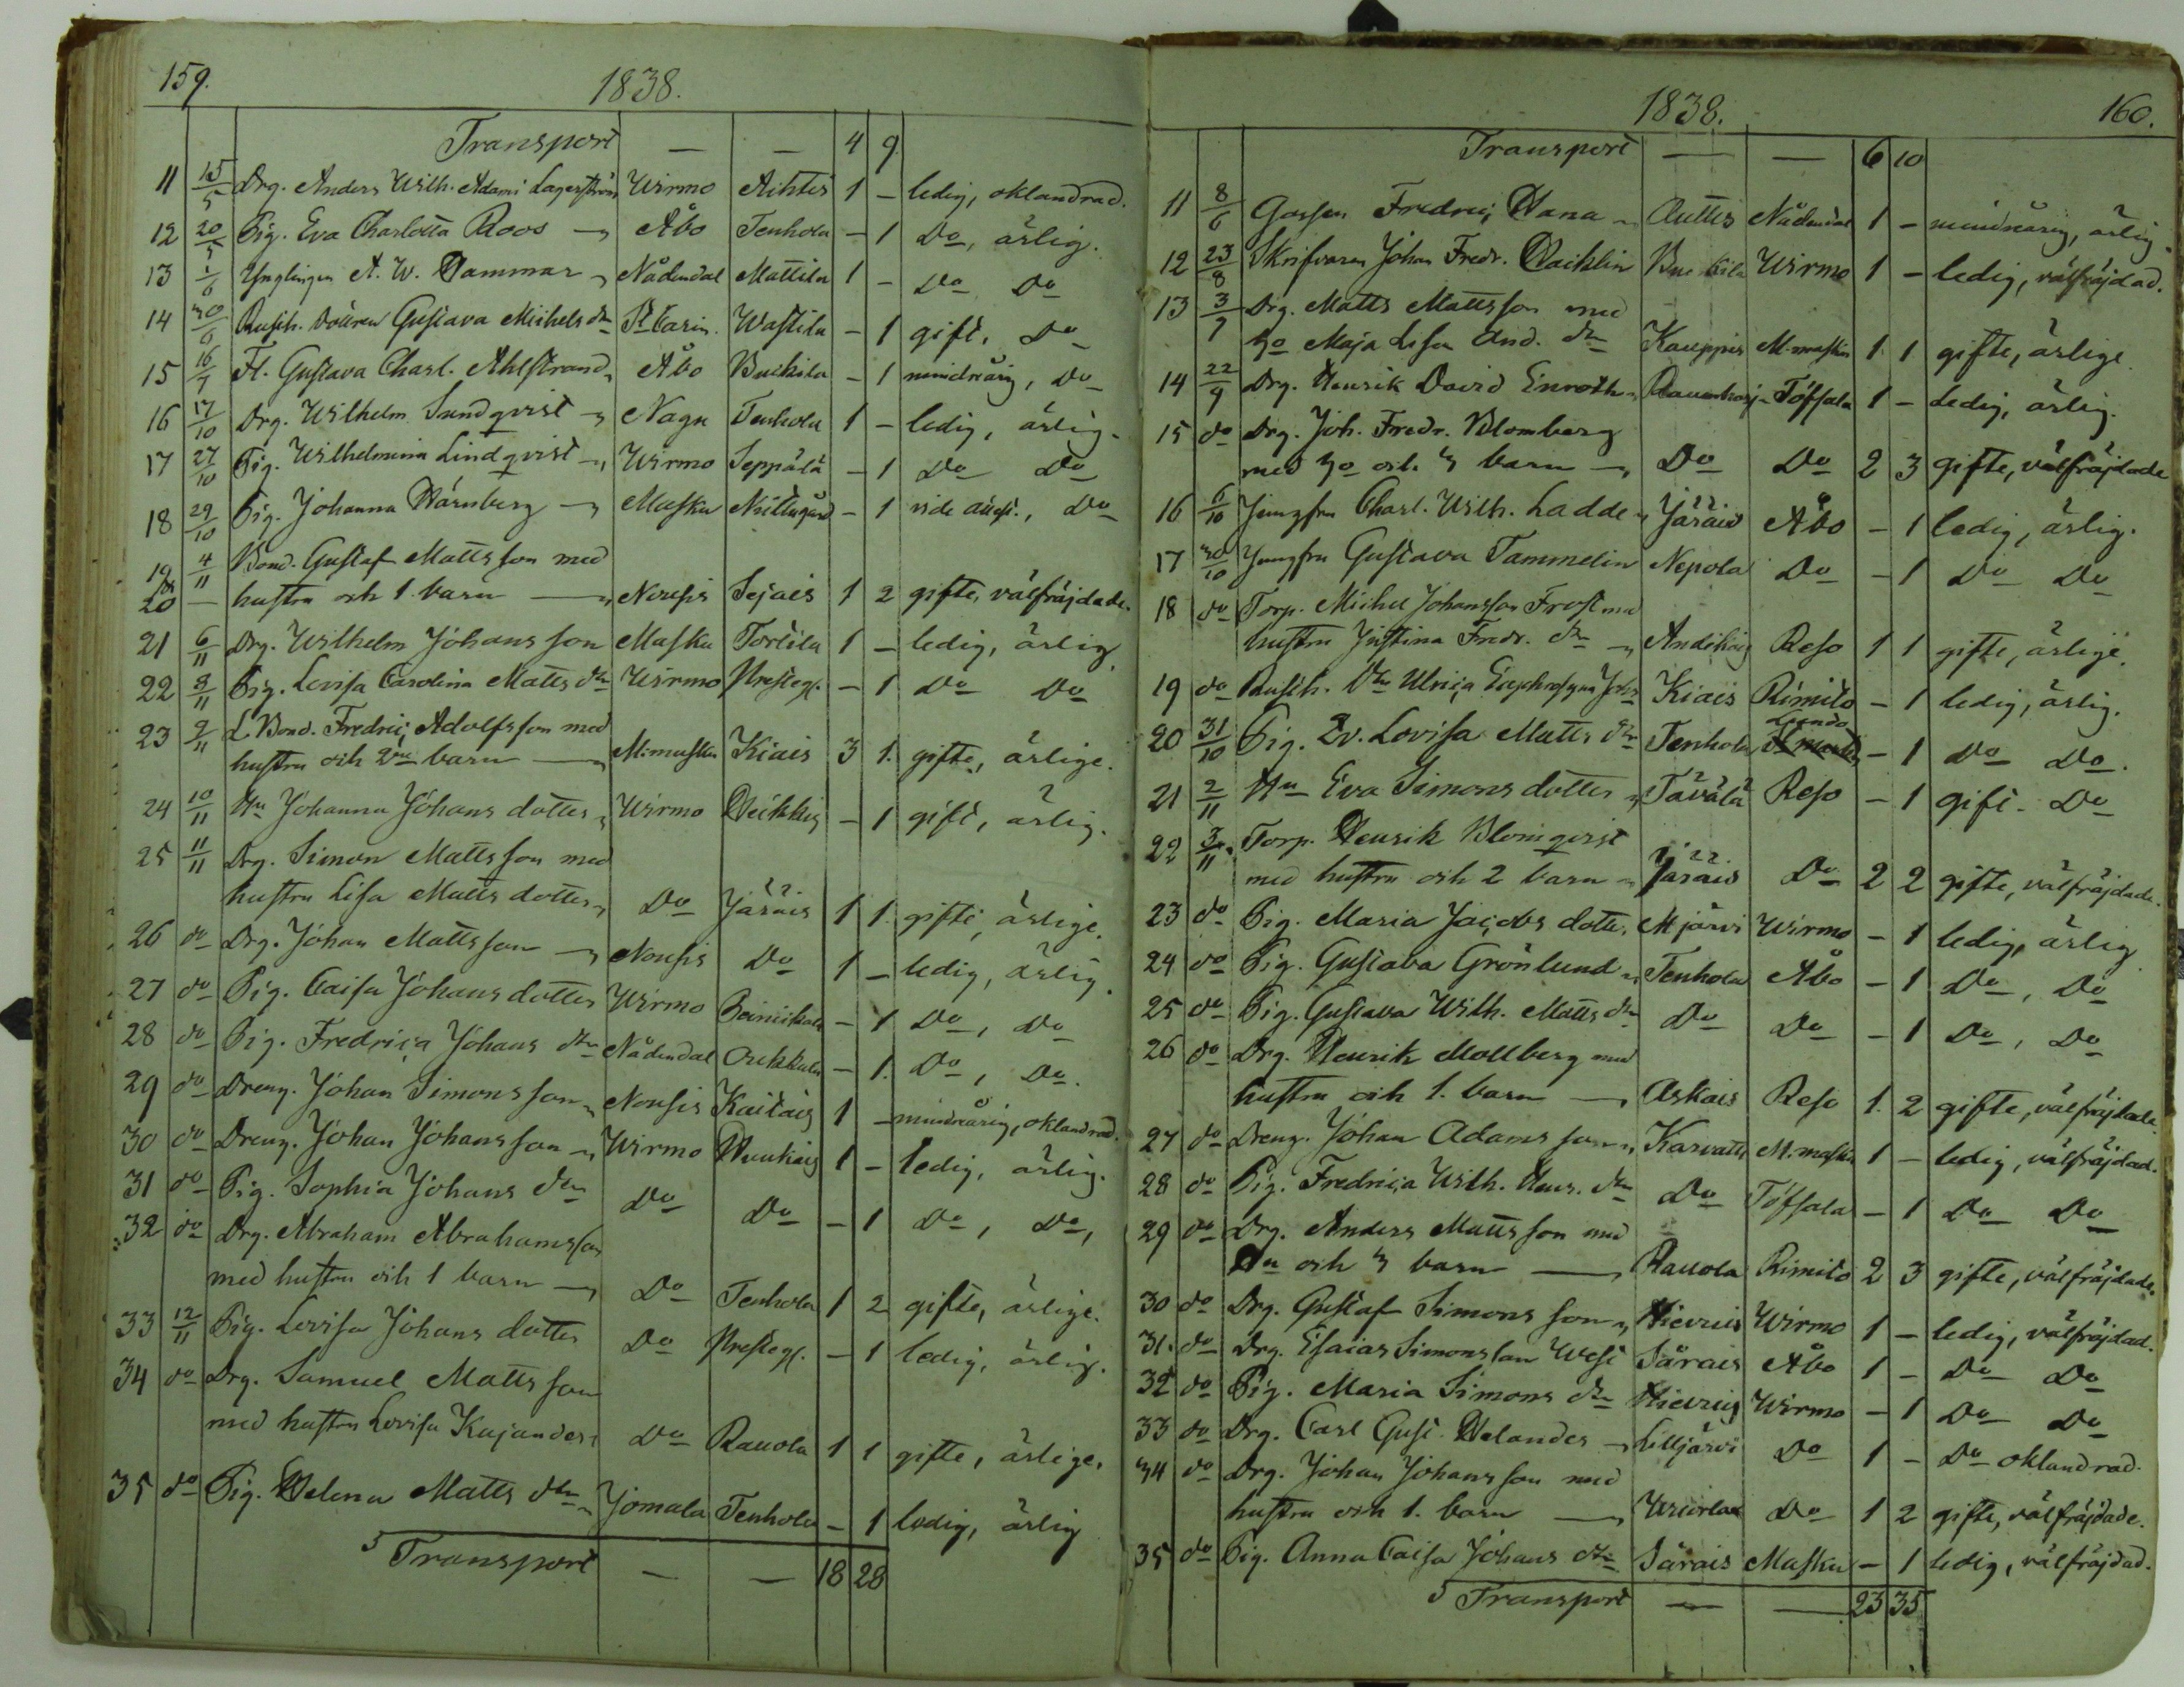 159.
1838.
Transport — — 4 9
11 15/5 Drg. Anders Wilh. Adami Lagerström Wirmo Aihtis 1 – ledig, oklandrad.
12 20/5 Pig. Eva Charlotta Roos Åbo Tenhola – 1 Do, ärlig.
13 1/6 Ynglingen A. W. Hammar Nådendal Mattila 1 – Do Do
14 30/6 Rusth. Gustava Michels dr St Carin Wastila – 1 gift, Do
15 16/7 Fl. Gustava Charl. Ahlstrand Åbo – 1 minderårig, Do
16 17/10 Drg. Wilhelm Sundqvist Nagu Tenhola 1 – ledig, ärlig.
17 27/10 Pig. Wilhelmina Lindqvist Wirmo Seppälä – 1 Do Do
18 29/10 Pig. Johanna Härnberg Masku – 1 Do
19 4/11 Bond. Gustaf Mattsson med
20 — hustru och 1. barn Nousis Sejais 1 2 gifte, välfräjdade.
21 6/11 Drg. Wilhelm Johansson Masku Tortila 1 – ledig, ärlig
22 8/11 Pig. Lovisa Carolina Matts dr Wirmo Presteg. – 1 Do Do
23 9/11 L Bond. Fredric Adolfsson med
hustru och 2ne barn M:masku Kiais 3 1. gifte, ärlige.
24 10/11 Hu Johanna Johans dotter Wirmo Heikkis – 1 gift, ärlig.
25 11/11 Drg. Simon Mattsson med
hustru Lisa Matts dotter Do Järais 1 1. gifte, ärlige.
26 do Drg. Johan Mattsson Nousis Do 1 – ledig, ärlig.
27 do Pig. Caisa Johans dotter Wirmo – 1 Do, Do
28 do Pig. Fredrica Johans dr Nådendal Ouhkula – 1. Do, Do.
29 do Dreng. Johan Simonsson Nousis Kaitais 1 – minderårig, oklandrad.
30 do Dreng. Johan Johansson Wirmo 1 – ledig, ärlig.
31 do Pig. Sophia Johans dr Do Do – 1 Do, Do,
32 do Drg. Abraham Abrahamsson
med hustru och 1 barn Do Tenhola 1 2 gifte, ärlige.
33 12/11 Pig. Lovisa Johans dotter Do Presteg. – 1 ledig, ärlig.
34 do Drg. Samuel Mattsson
med hustru Lovisa Kajander Do Rauola 1 1 gifte, ärlige.
35 do Pig. Helena Matts dr Jomala Tenhola – 1 ledig, ärlig
Transport — — 18 28
1838.
160.
Transport — — 6 10
11 8/6 Gossen Fredric Hana Auttis Nådendal 1 – minderårig, ärlig.
12 23/8 Skrifvaren Johan Fredr. Wirmo 1 – ledig, välfräjdad.
13 3/9 Drg. Matts Mattsson med
Maja Lisa And. dr Kauppis M. masku 1. 1 gifte, ärlige.
14 22/9 Drg. Henrik David Enroth Töfsala 1 – ledig, ärlig.
15 do Drg. Joh. Fredr. Blomberg
med och 3 barn Do Do 2 3 gifte, välfräjdade
16 6/10 Jungfru Charl. Wilh. Ladde Järais Åbo – 1 ledig, ärlig.
17 30/10 Jungfru Gustava Tammelin Nepola Do – 1 Do Do
18 do Torp. Michel Johansson Frost med
hustru Justina Fredr. dr Reso 1 1 gifte, ärlige.
19 do Rusth. dr Ulrica Euphrosyna Kiais Rimito – 1 ledig, ärlig.
20 31/10 Pig. Ev. Lovisa Matts dr Tenhola Lundo – 1 Do Do.
21 2/11 Hu Eva Simons dotter Tavälä Reso – 1 gift. Do
22 3/11 Torp. Henrik Blomqvist
med hustru och 2 barn Järais Do 2 2 gifte, välfräjdade.
23 do Pig. Maria Jacobs dotter Mjärvi Wirmo – 1 ledig, ärlig
24 do Pig. Gustava Grönlund Tenhola Åbo – 1 Do, Do
25 do Pig. Gustava Wilh. Matts dr Do Do – 1 Do, Do
26 do Drg. Henrik Mollberg med
hustru och 1. barn Askais Reso 1. 2 gifte, välfräjdade.
27 do Dreng. Johan Adamsson Karvatti M. masku 1 – ledig, välfräjdad.
28 do Pig. Fredrica Wilh. Henr. dr Do Töfsala – 1 Do Do
29 do Drg. Anders Mattsson med
Hu och 3 barn Rauola Rimito 2 3 gifte, välfräjdade.
30 do Drg. Gustaf Simonsson Hievais Wirmo 1 – ledig, välfräjdad.
31. do Drg. Esaias Simonsson West Särais Åbo 1 – Do Do
32 do Pig. Maria Simons dr Hievais Wirmo – 1 Do Do
33 do Drg. Carl Gust. Helander Lilljärvi Do 1 – Do oklandrad.
34 do Drg. Johan Johansson med
hustru och 1. barn Do 1 2 gifte, välfräjdade.
35 do Pig. Anna Caisa Johans dr Särais Masku – 1 ledig, välfräjdad.
Transport — — 23 35